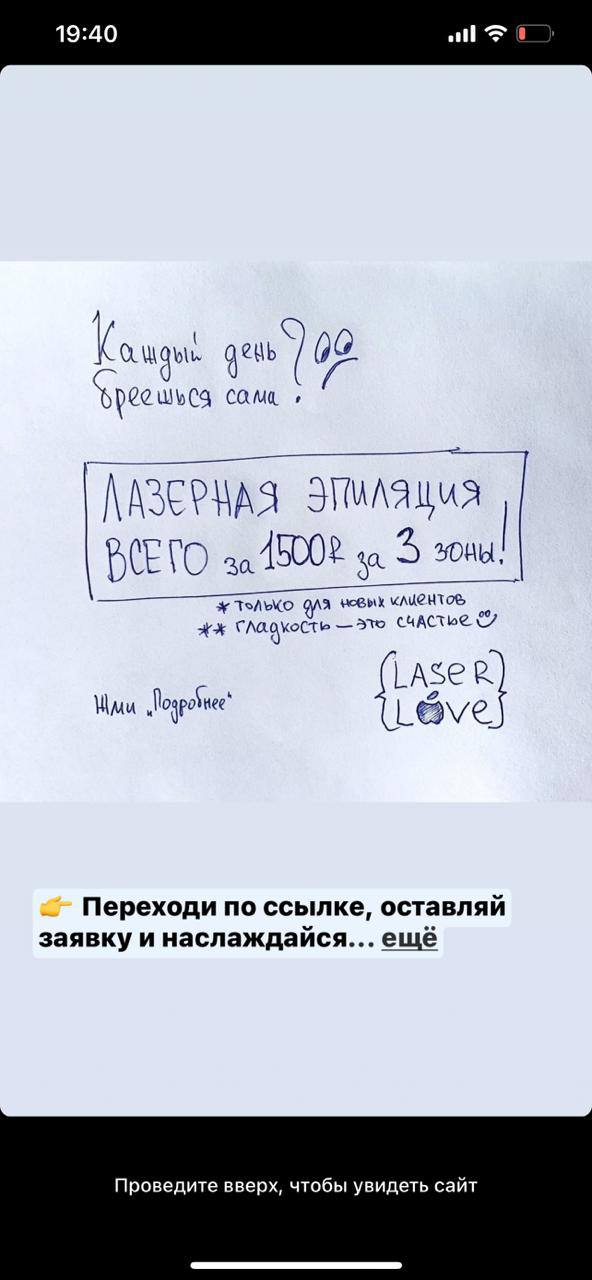 19:40
Каждый день
бреешься сама ?
ЛАЗЕРНАЯ ЭПИЛЯЦИЯ
ВСЕГО за 1500₽ за 3 зоны!
* только для новых клиентов
** гладкость — это счастье
Жми „Подробнее“
{LASER}
{LOVE}
👉 Переходи по ссылке, оставляй
заявку и наслаждайся... ещё
Проведите вверх, чтобы увидеть сайт